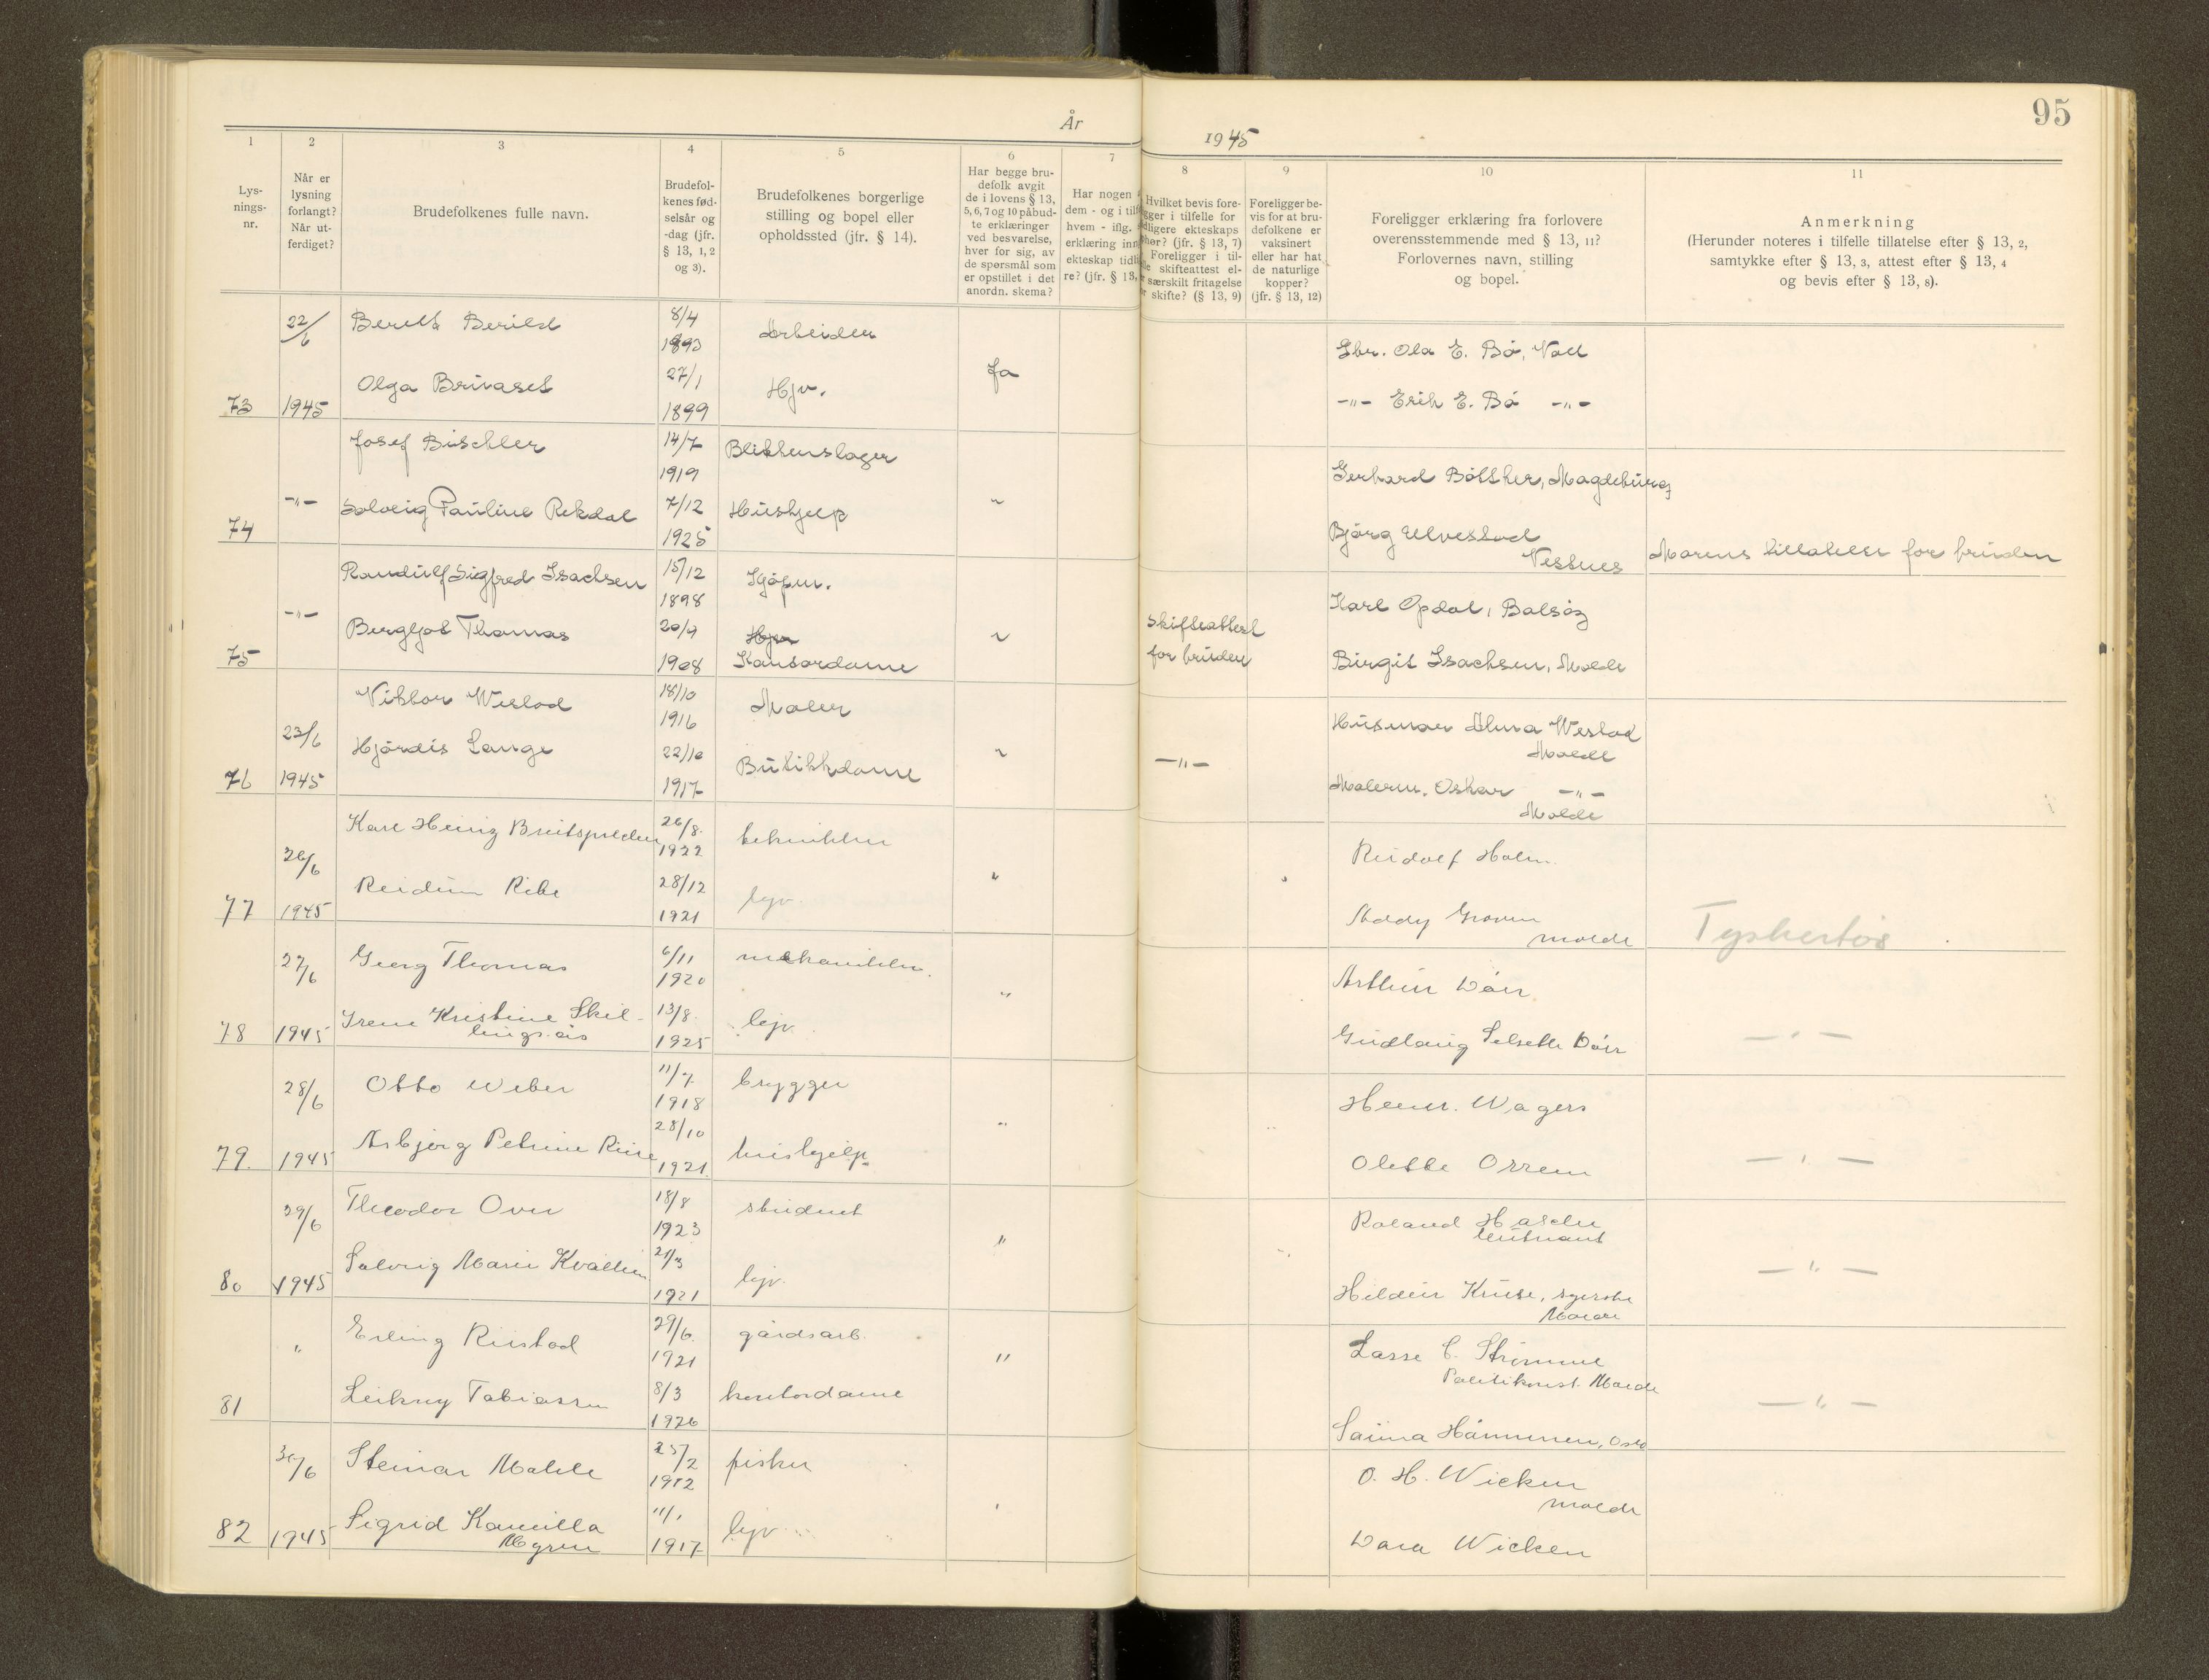 95
År
1945
1
2
3
4
5
6
7
8
9
10
11
Lys-
nings-
nr.
Når er
lysning
forlangt?
Når ut-
ferdiget?
Brudefolkenes fulle navn.
Brudefol-
kenes fød-
selsår og
-dag (jfr.
§ 13, 1, 2
og 3).
Brudefolkenes borgerlige
stilling og bopel eller
opholdssted (jfr. § 14).
Har begge bru-
defolk avgit
de i lovens § 13,
5, 6, 7 og 10 påbud-
te erklæringer
ved besvarelse,
hver for sig, av
de spørsmål som
er opstillet i det
anordn. skema?
Har nogen
dem - og i tilf
hvem - iflg.
erklæring inn
ekteskap tidli
re? (jfr. § 13,
Hvilket bevis fore-
gger i tilfelle for
dligere ekteskaps
hør? (jfr. § 13, 7)
Foreligger i til-
le skifteattest el-
r særskilt fritagelse
r skifte? (§ 13, 9)
Foreligger be-
vis for at bru-
defolkene er
vaksinert
eller har hat
de naturlige
kopper?
(jfr. § 13, 12)
Foreligger erklæring fra forlovere
overensstemmende med § 13, 11?
Forlovernes navn, stilling
og bopel.
Anmerkning
(Herunder noteres i tilfelle tillatelse efter § 13, 2,
samtykke efter § 13, 3, attest efter § 13, 4
og bevis efter § 13, 8).
22/6 Berett Berild 8/4 1893 Arbeider
Gbr. Ola E. Bø, Voll
73 1945 Olga Brivaset 27/1 1899 Hjv. Ja
-"- Erik E. Bø -"-
Josef Bischler 14/7 1919 Blikkenslager
Gerhard Bötther, Magdeburg
74 -"- Solveig Pauline Rekdal 7/12 1925 Hushjelp "
Bjørg Ulvestad
Vestnes
Morens tillatelse for bruden
Randulf Sigfred Isachsen 15/12 1898 Kjøpm.
Karl Opdal, Bolsøy
75 -"- Bergljot Thomas 20/9 1908 Hjv
Kontordame "
Skifteattest
for bruden
Birgit Isachsen, Molde
Viktor Westad 18/10 1916 Maler
Husmor Alma Westad
Molde
23/6
76 1945 Hjørdis Lange 22/10 1917 Butikkdame "
-"-
Malerm. Oskar -"-
Molde
Karl Heinz Breitsprecher 26/8 1922 tekniker
Rudolf Holm
26/6
77 1945 Reidun Ribe 28/12 1921 hjv. "
Molde
Tyskertøs
27/6 Georg Thomas 6/11 1920 mekaniker.
Arthur Dåir
78 1945 Irene Kristine Skil-
lingsås 13/8 1925 hjv. "
Gudlaug Selsette Dåir
— " —
28/6 Otto Weber 11/7 1918 brygger
Henr. Wagers
79. 1945 Asbjørg Petrine Rise 28/10 1921 hushjelp "
Olette Orrem
— " —
29/6 Theodor Over 18/8 1923 student
Roland Hascher
leutnant
80 1945 Solveig Marie 21/3 1921 hjv. "
Hildur Kruse, syerske
Molde
— " —
" Erling Rustad 29/6 1921 gårdsarb.
Lasse C. Strømme
Politikonst. Molde
81 Leikny Tobiassen 8/3 1926 kontordame "
Saima Hänninen, Oslo
— " —
30/6 Steinar Malile 25/2 1912 fisker
O. H. Wicken
Molde
82 1945 Sigrid Kamilla
Myren 11/1 1917 hjv. "
Dara Wicken